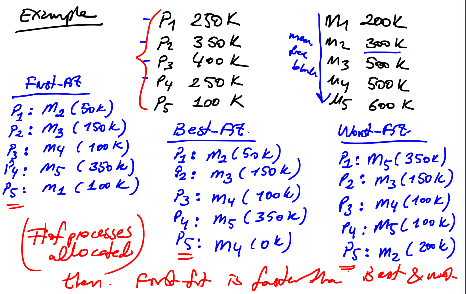 Example
P1 250K
P2 350K
P3 400K
P4 250K
P5 100K
M1 200K
M2 300K
M3 500K
M4 500K
M5 600K
mem
free
block
First-fit
P1: M2 (50K)
P2: M3 (150K)
P3: M4 (100K)
P4: M5 (350K)
P5: M1 (100K)
Best-fit
P1: M2 (50K)
P2: M3 (150K)
P3: M4 (100K)
P4: M5 (350K)
P5: M4 (0K)
Worst-fit
P1: M5 (350K)
P2: M3 (150K)
P3: M4 (100K)
P4: M5 (100K)
P5: M2 (200K)
(# of processes
allocated)
then. First fit is faster than Best & worst